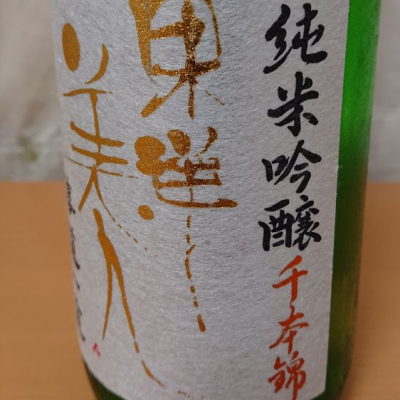 純米吟醸 千本錦
東洋
美人